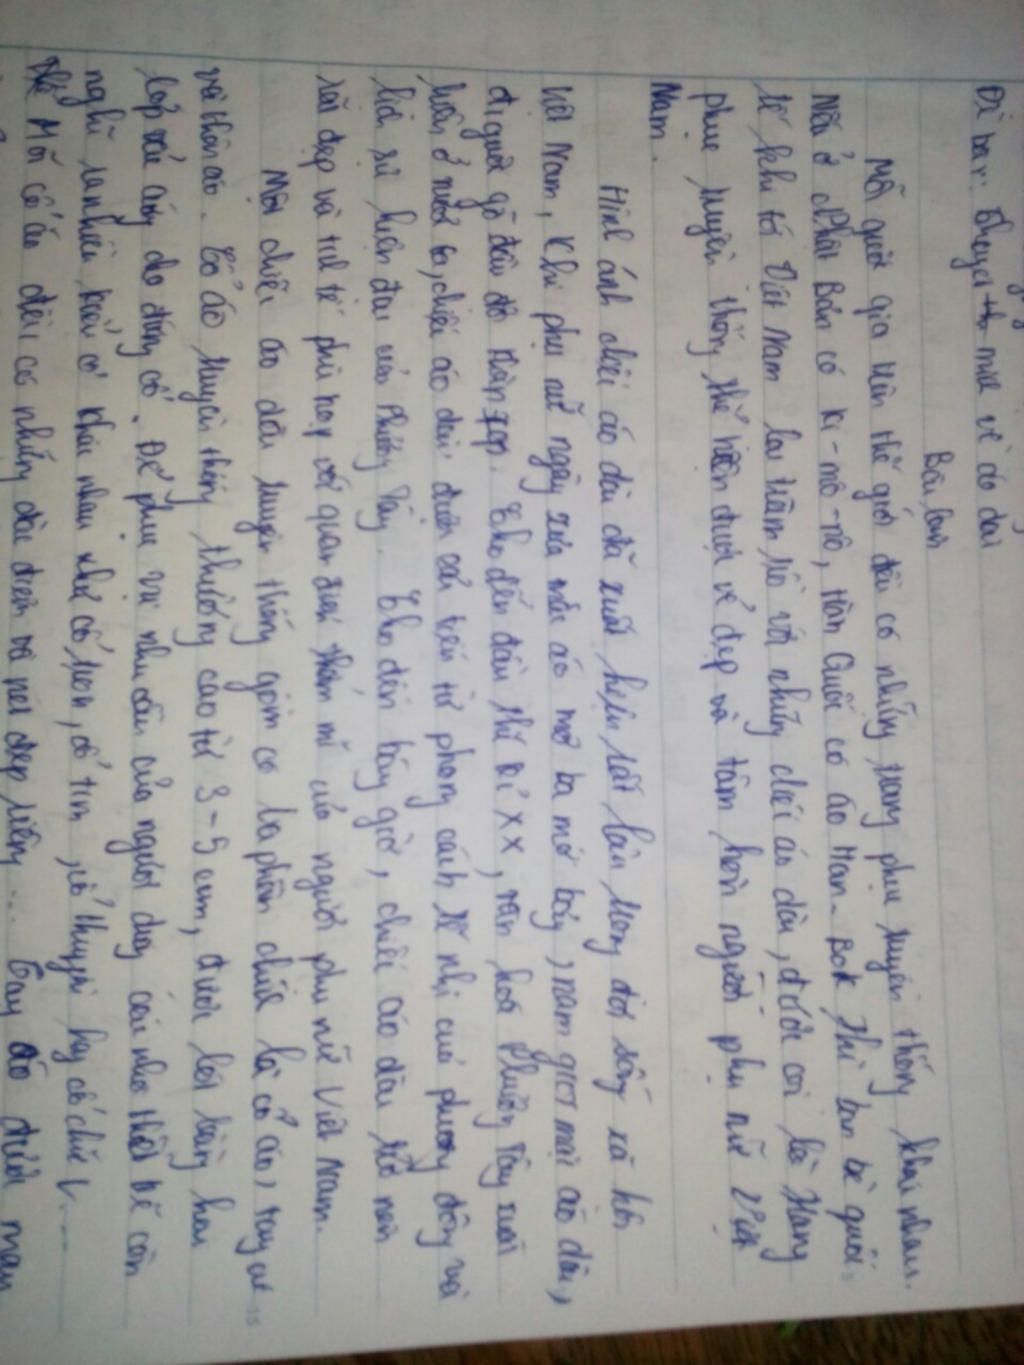 Đề bài: Thuyết minh về áo dài
Bài làm
Mỗi quốc gia trên thế giới đều có những trang phục truyền thống khác nhau.
Nếu ở Nhật Bản có Ki-mô-nô, Hàn Quốc có áo Han-Bok thì bạn bè quốc
tế khi tới Việt Nam lại trầm trồ với những chiếc áo dài, được coi là trang
phục truyền thống thể hiện được vẻ đẹp và tâm hồn người phụ nữ Việt
Nam.
Hình ảnh chiếc áo dài đã xuất hiện rất lâu trong đời sống xã hội
Việt Nam, khi phụ nữ ngày xưa mặc áo mớ ba mớ bảy, nam giới mặc áo dài,
đi guốc gỗ đầu đội khăn xếp. Cho đến đầu thế kỉ XX, văn hoá phương Tây
ở nước ta, chiếc áo dài được cải tiến từ phong cách tế nhị của phương đông và
hiện đại của Phương Tây. Cho đến bây giờ, chiếc áo dài trở nên
rất đẹp và tinh tế phù hợp với quan điểm thẩm mĩ của người phụ nữ Việt Nam.
Một chiếc áo dài truyền thống gồm có ba phần chính là cổ áo, tay áo
và thân áo. Cổ áo truyền thống thường cao từ 3-5 cm, được lót bằng hai
lớp vải cứng cho đứng cổ. Để phục vụ nhu cầu của người dùng các nhà thiết kế còn
nghĩ ra nhiều kiểu cổ khác nhau như cổ tròn, cổ tim, cổ thuyền hay cổ chữ V...
Mỗi cổ áo đều có những đặc điểm và nét đẹp riêng... Tay áo được may